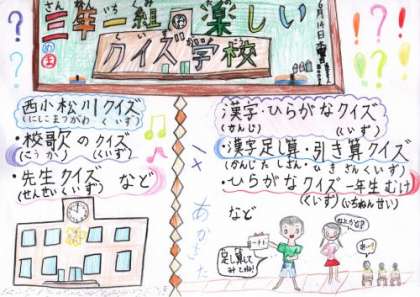 さん ねん いち くみ たの
三年一組の楽しい
くいず がっこう
クイズ学校
西小松川クイズ
(にしこまつがわ くいず)
・校歌のクイズ
(こうか) (くいず)
・先生クイズ など
(せんせい くいず)
漢字・ひらがなクイズ
(かんじ) (くいず)
・漢字足し算・引き算クイズ
(かんじたしざん・ひきざんくいず)
・ひらがなクイズ 一年生むけ
(くいず) (いちねんせい)
など
足し算してみてね!